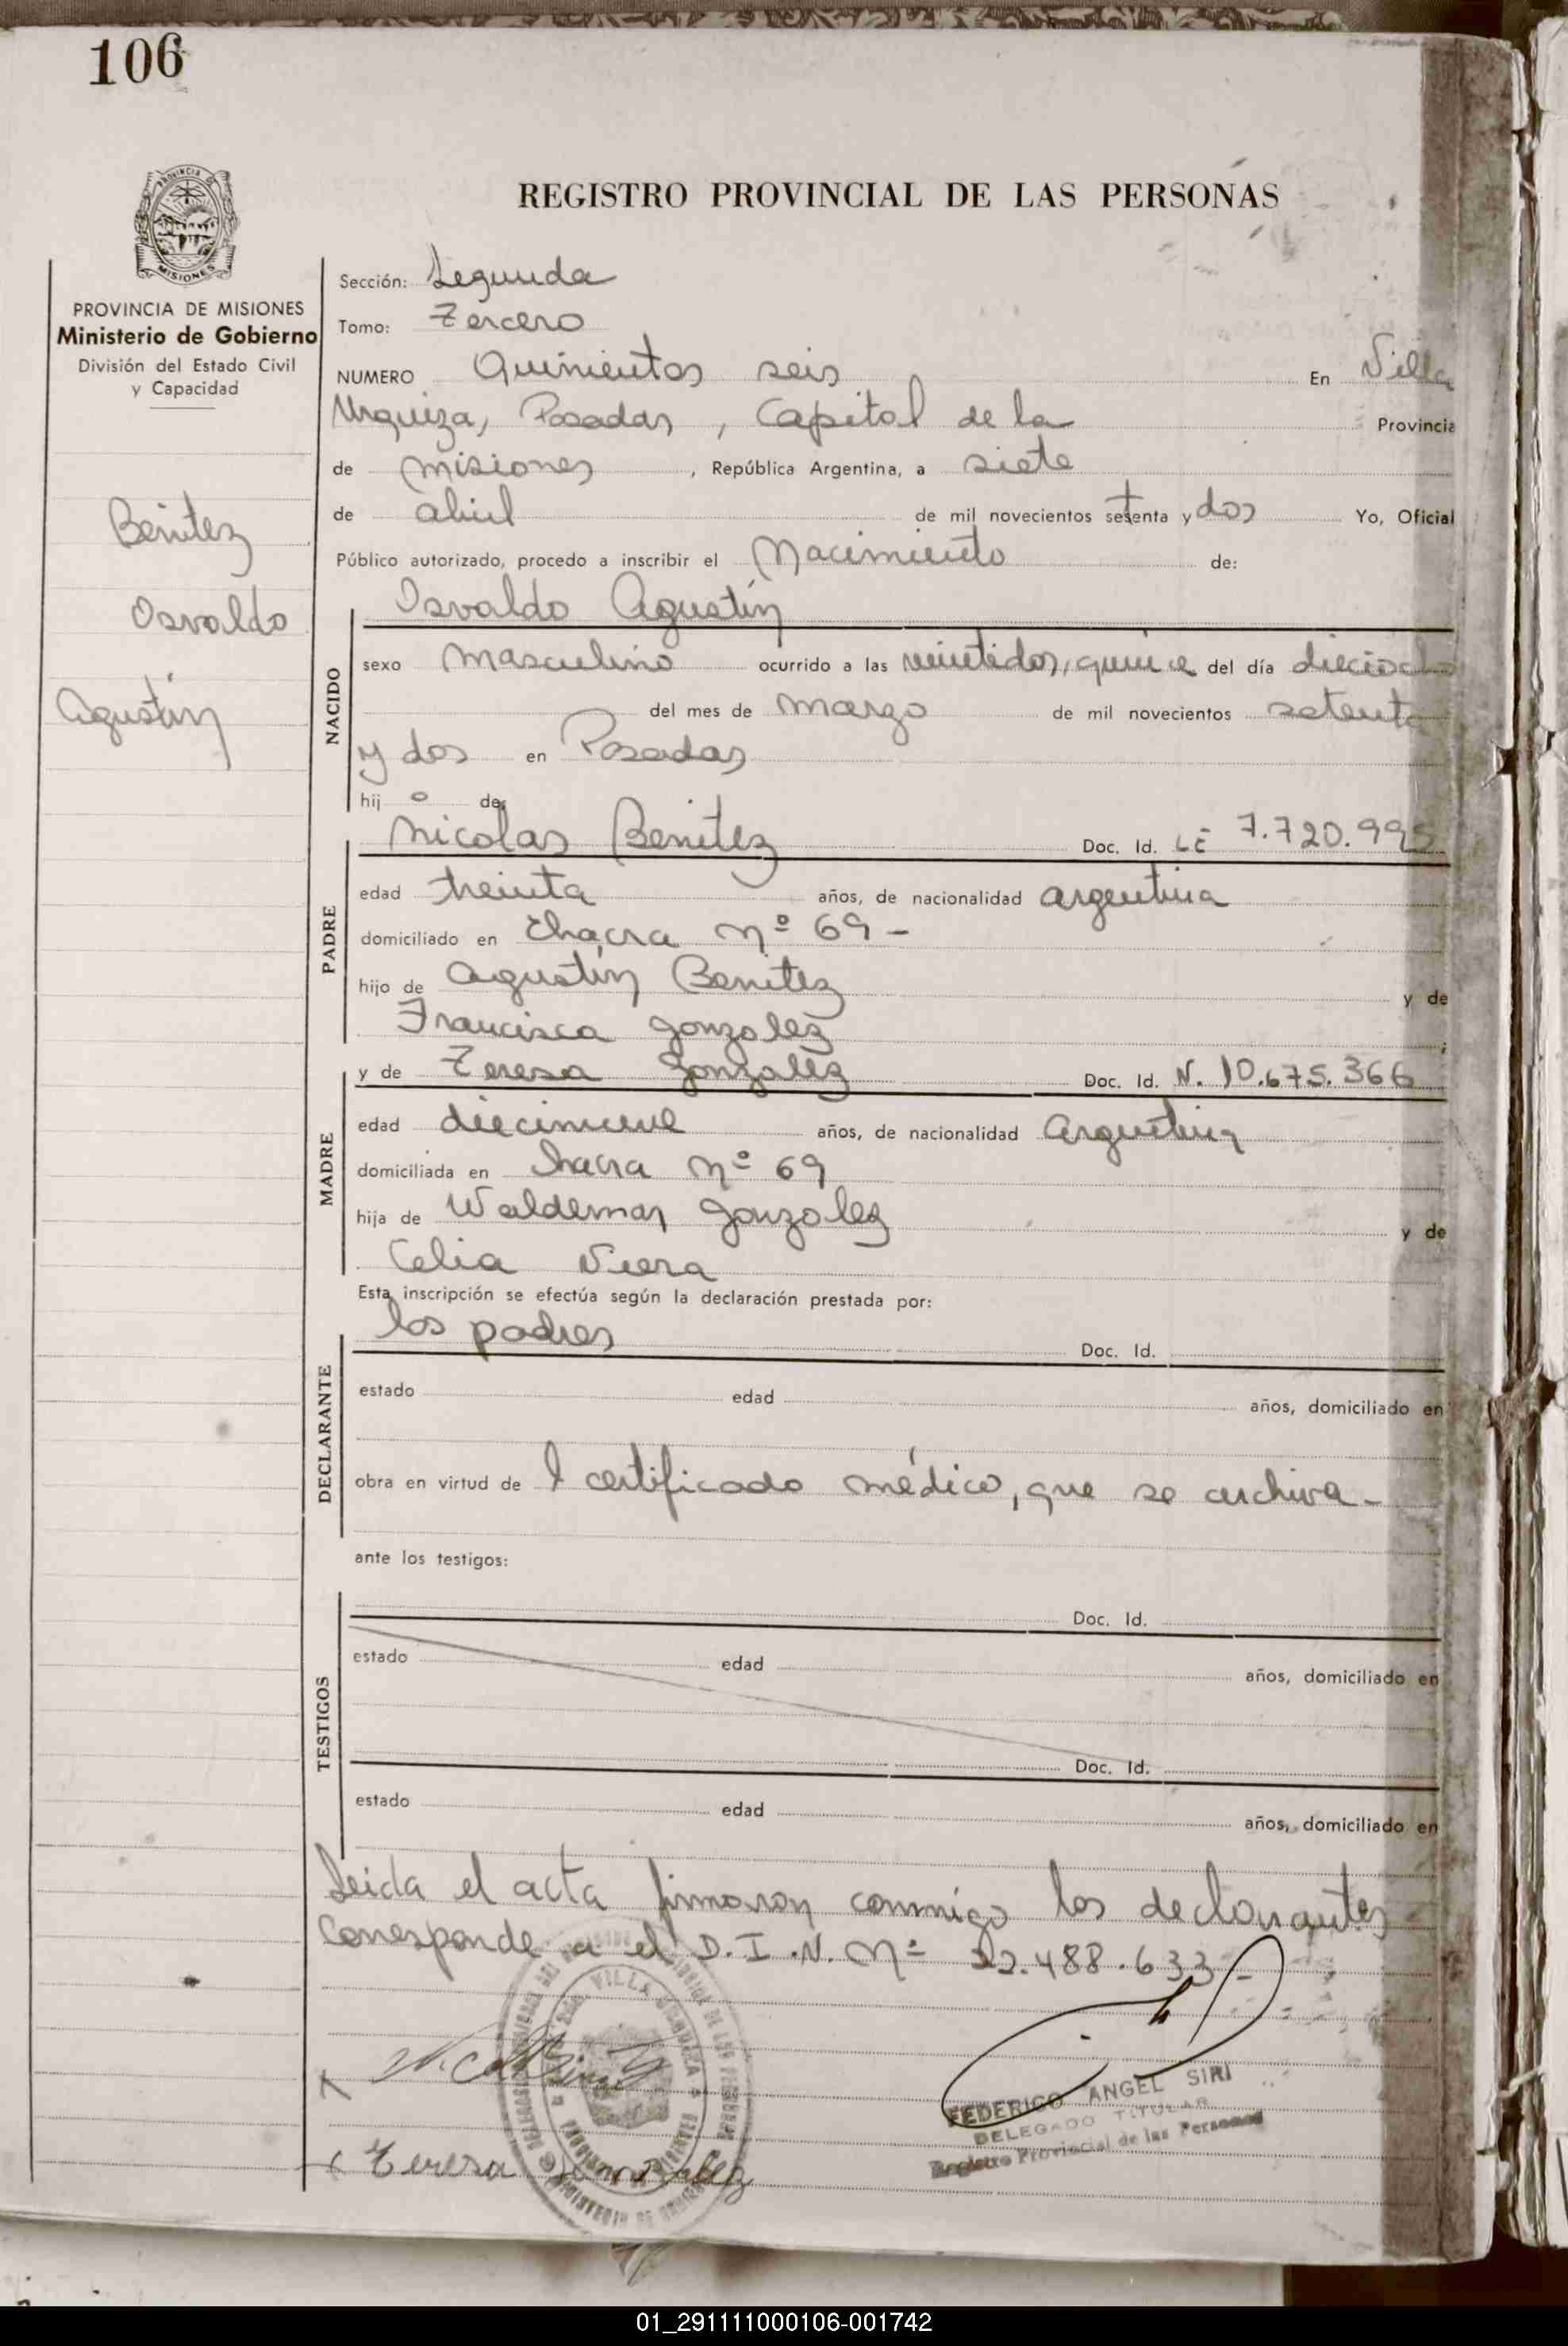 106
REGISTRO PROVINCIAL DE LAS PERSONAS
PROVINCIA DE MISIONES
Ministerio de Gobierno
División del Estado Civil
y Capacidad
Benitez
Osvaldo
Agustín
Sección: Segunda
Tomo: Tercero
NUMERO Quinientos seis En Villa
Urquiza, Posadas, Capital de la Provincia
de Misiones, República Argentina, a siete
de abril de mil novecientos setenta y dos Yo, Oficial
Público autorizado, procedo a inscribir el Nacimiento de:
NACIDO
Osvaldo Agustín
sexo masculino ocurrido a las veintidos, quince del día dieciocho
del mes de marzo de mil novecientos setenta
y dos en Posadas
hij o de
PADRE
Nicolas Benitez Doc. Id. LE 7.720.995
edad treinta años, de nacionalidad argentina
domiciliado en Chacra Nº 69 -
hijo de Agustín Benitez y de
Francisca Gonzalez ;
MADRE
y de Teresa Gonzalez Doc. Id. N. 10.675.366
edad diecinueve años, de nacionalidad Argentina
domiciliada en Chacra Nº 69
hija de Waldemar Gonzalez y de
Celia Viera
Esta inscripción se efectúa según la declaración prestada por:
DECLARANTE
los padres Doc. Id.
estado edad años, domiciliado en
obra en virtud de l certificado médico, que se archiva -
ante los testigos:
TESTIGOS
Doc. Id.
estado edad años, domiciliado en
Doc. Id.
estado edad años, domiciliado en
Leida el acta firmaron conmigo los declarantes
Corresponde a el D.I.N. Nº 22.488.633 -
VILLA URQUIZA
FEDERICO ANGEL SIRI
DELEGADO TITULAR
Registro Provincial de las Personas
Teresa Gonzalez
01_291111000106-001742